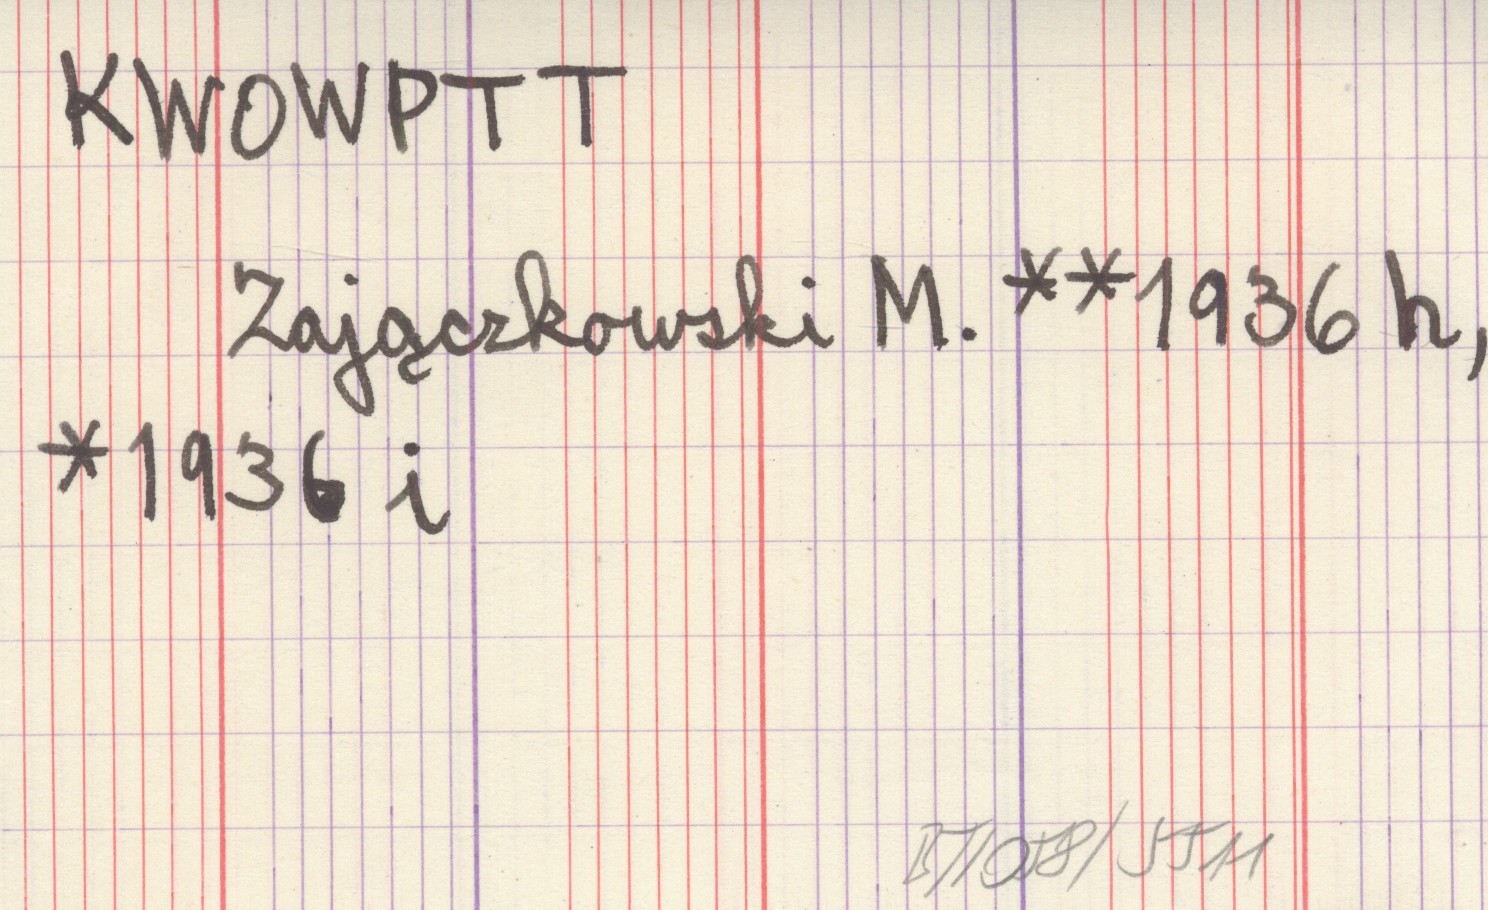 KWOWPTT
Zajączkowski M. **1936 h,
*1936 i